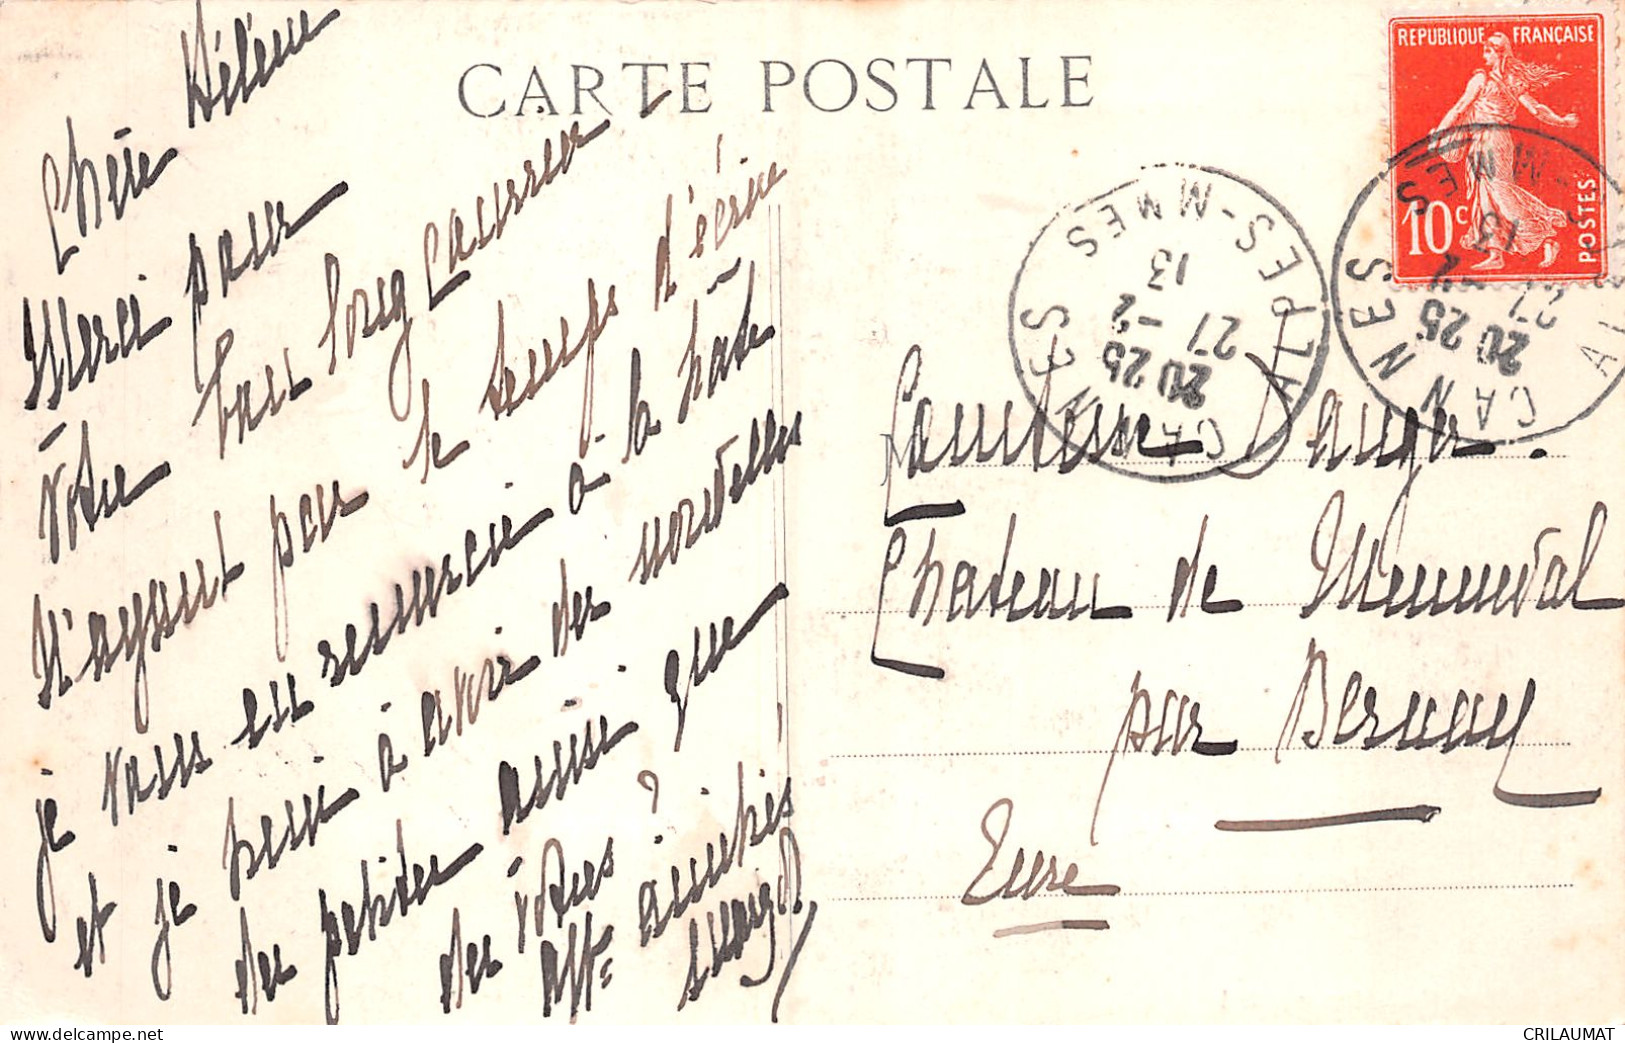 CARTE POSTALE
REPUBLIQUE FRANÇAISE
10c
POSTES
CANNES ALPES-MMES
20 25
27 -2
13
CANNES ALPES-MMES
20 25
27 -2
13
Chère Hélène
Merci pour
Votre bon long
N'ayant pas le temps d'écrire
je vous en remercie à la hâte
et je pense à avoir des nouvelles
des petites aussi que
des vôtres ?
Aff.
Comtesse d'Auger.
Chateau de Menneval
par Bernay
Eure
CRILAUMAT